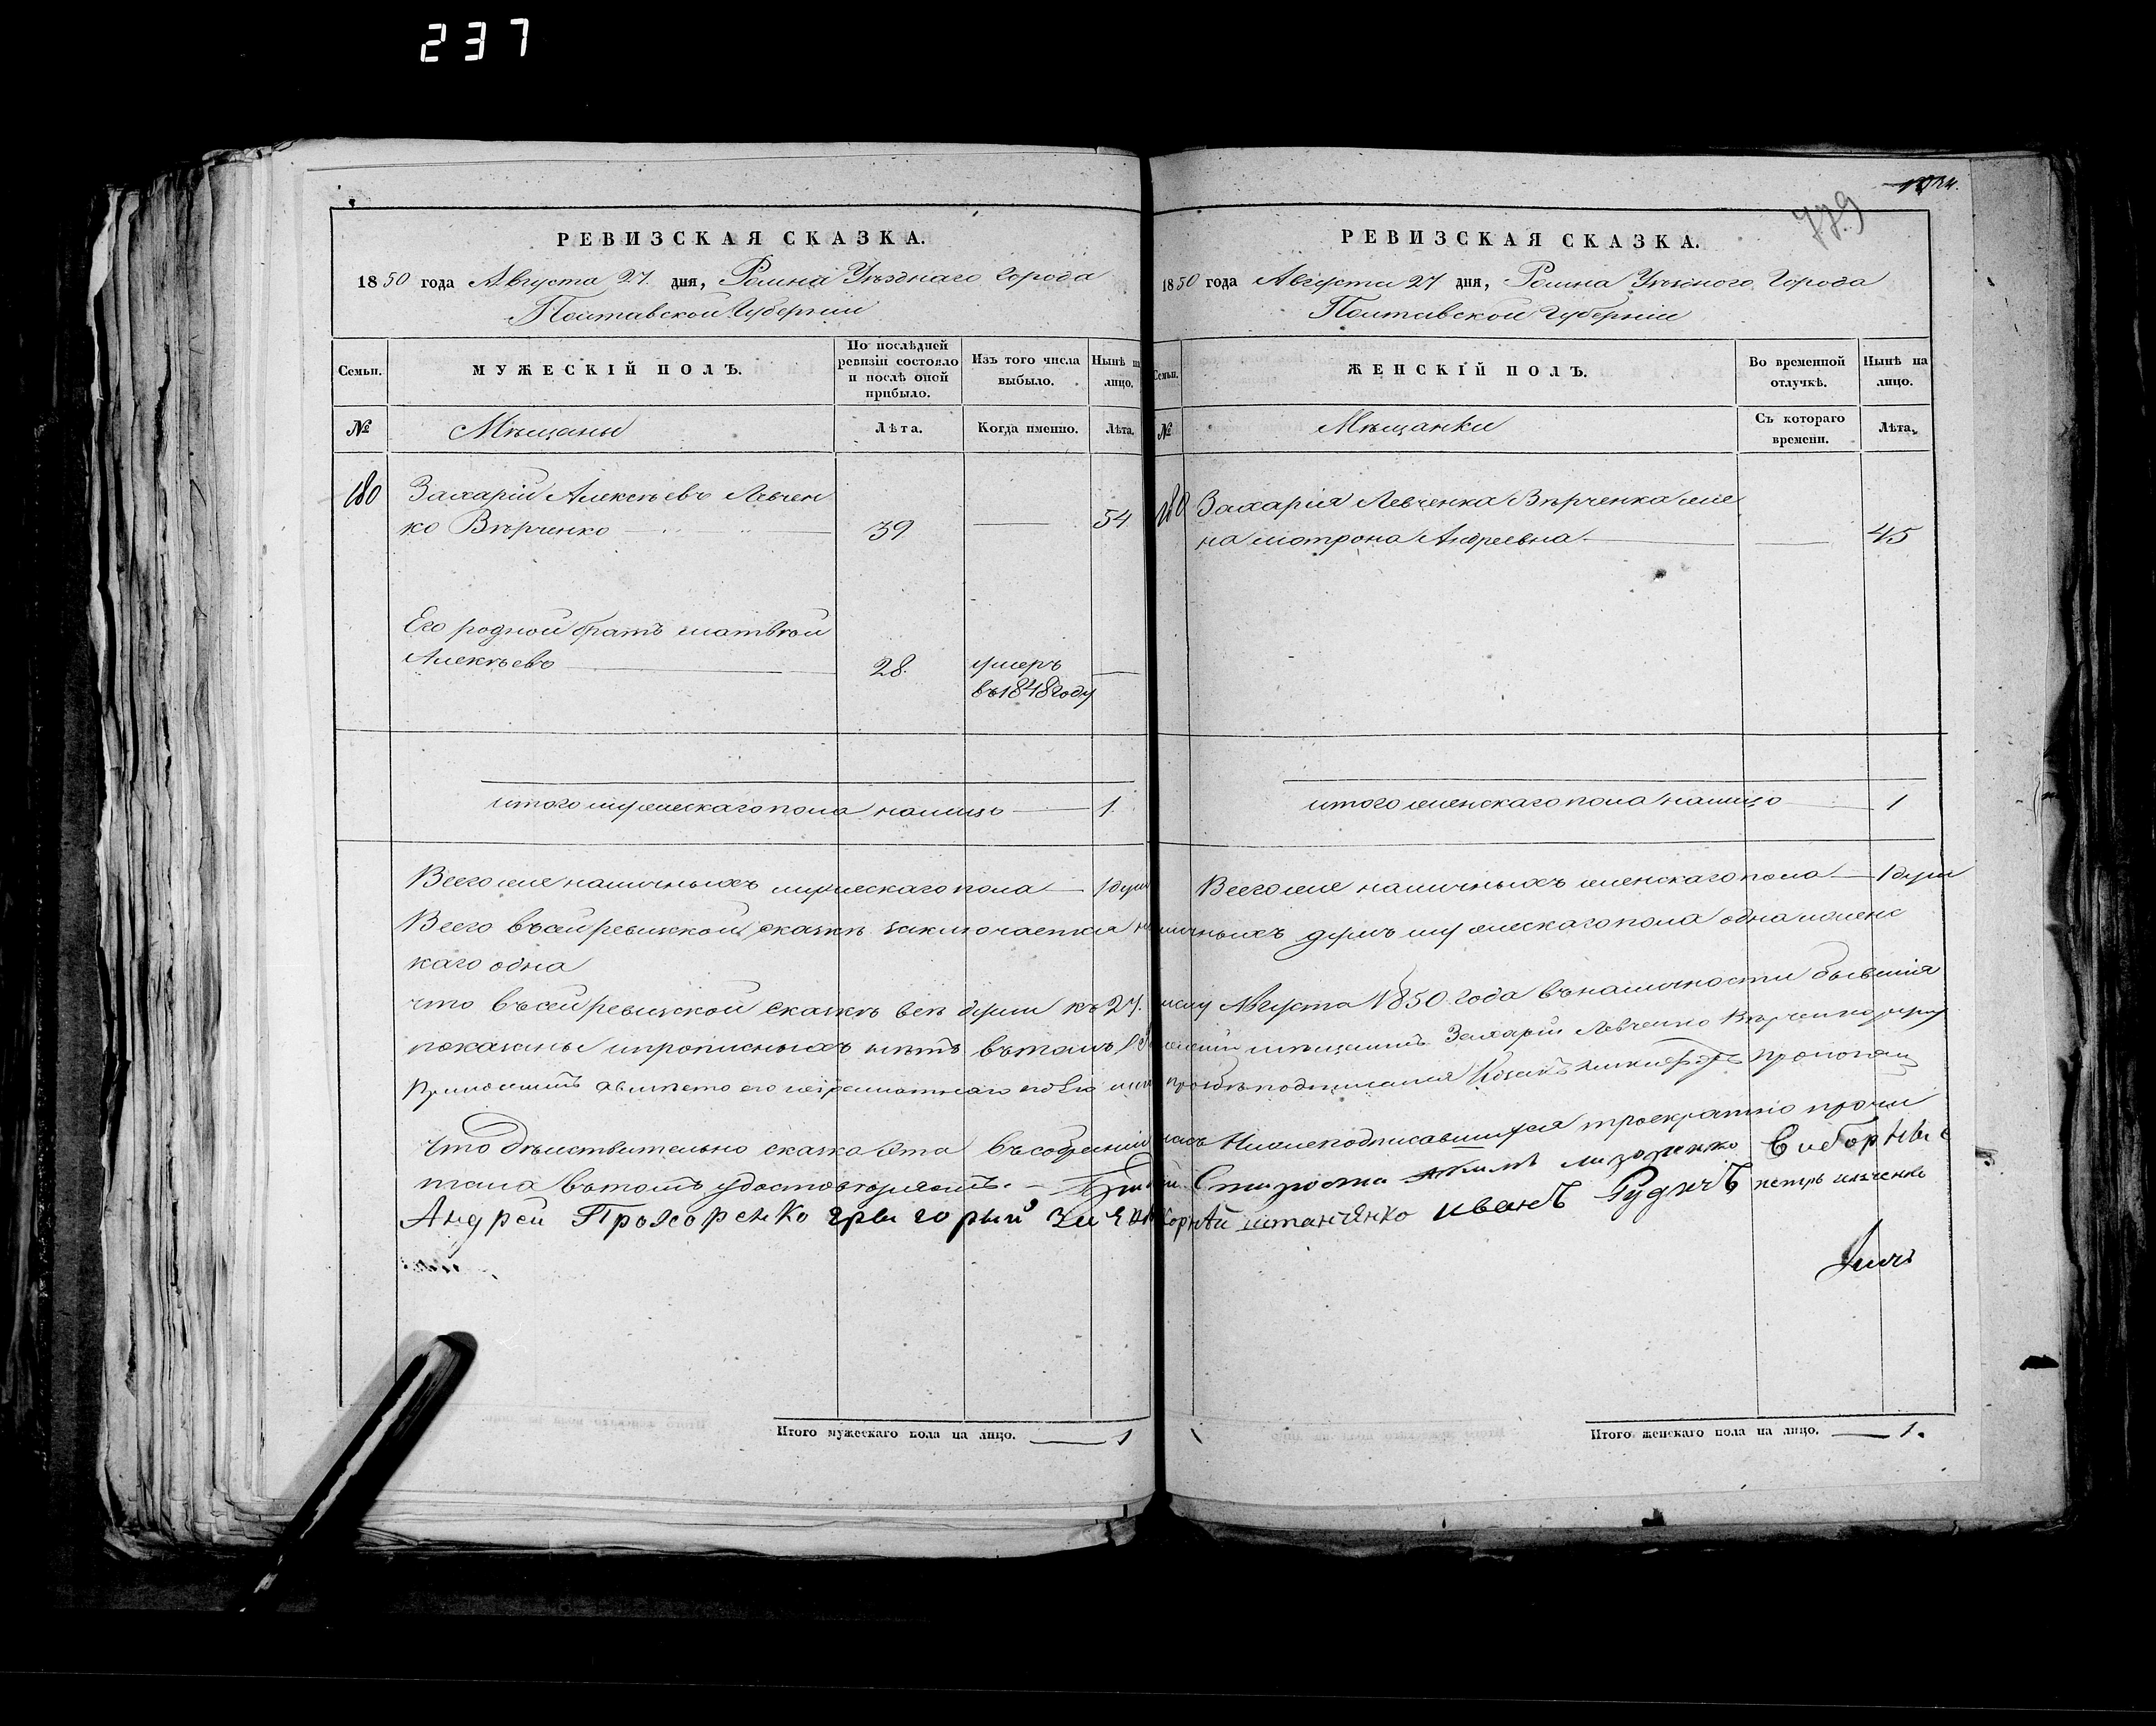 237
РЕВИЗСКАЯ СКАЗКА.
1850 года Августа 27. дня, Ромна Уѣзднаго Города
Полтавской Губерніи
Семьи.
МУЖЕСКІЙ ПОЛЪ.
По послѣдней ревизіи состояло и послѣ оной прибыло.
Изъ того числа выбыло.
Нынѣ на лицо.
№
Мѣщаны
Лѣта.
Когда именно.
Лѣта.
180
Захарій Алексѣевъ Левчен
ко Вѣрченко
39
54
Его родной братъ Матвѣй
Алексѣевъ
28.
умеръ
въ 1848 году
итого мужескаго пола налицо 1.
Всего же наличныхъ мужескаго пола 1 душа
779
РЕВИЗСКАЯ СКАЗКА.
1850 года Августа 27 дня, Ромна Уѣзного Города
Полтавской Губерніи
Семьи.
ЖЕНСКІЙ ПОЛЪ.
Во временной отлучкѣ.
Нынѣ на лицо.
№
Мѣщанки
Съ котораго времени.
Лѣта.
180
Захарія Левченка Вѣрченка же
на Мотрона Андреевна
45
итого женскаго пола налицо 1
Всего же наличныхъ женскаго пола 1 душа
Всего въ сей ревизской сказкѣ заключается наличныхъ душъ мужескаго пола одна и женс
каго одна
что въ сей ревизской сказкѣ всѣ души къ 27. числу Августа 1850 года въ наличности бывшія
показаны и прописныхъ нѣтъ въ томъ мѣщанинъ Захарій Левченко Вѣрченко
вмѣсто его неграмотнаго по его просьбѣ подписался Козакъ
Что дѣйствительно сказка эта въ собраніи насъ Нижеподписавшихся троекратно прочи
тана въ томъ удостовѣряемъ. Староста Виборные
Андрей Прохоренко григорый Корнѣй иванъ Рудичъ петръ
Итого мужескаго пола на лицо. 1
Итого женскаго пола на лицо. 1.